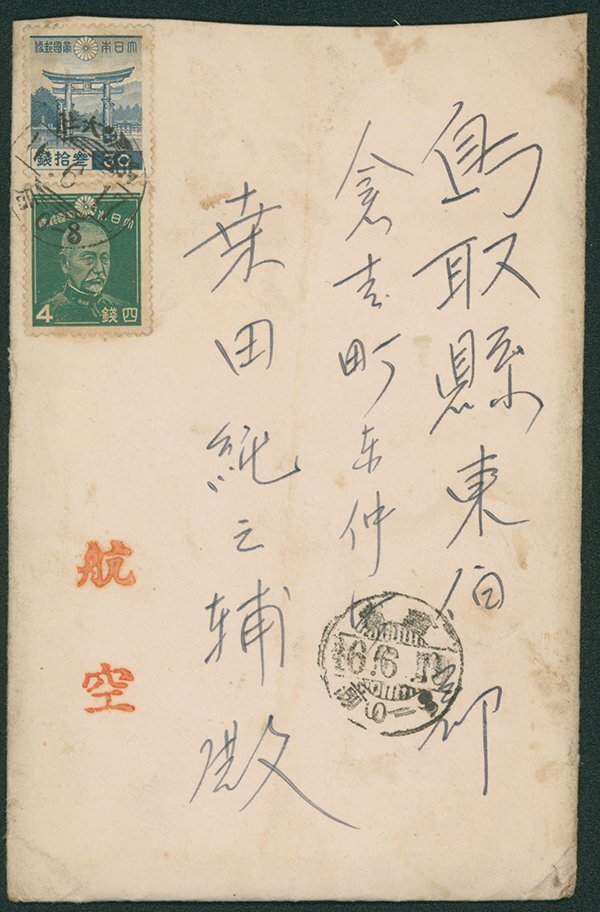 鳥取縣東伯郡
倉吉町东仲
桒田純之輔殿
大日本帝國郵便
叁拾錢
30
大日本帝國郵便
4
四錢
航空
16.6